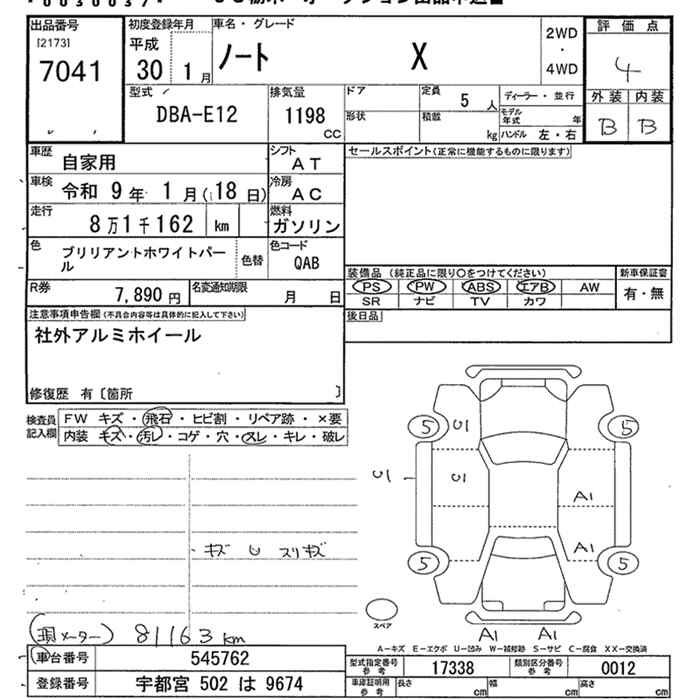 出品番号 初度登録年月 車名・グレード 2WD・4WD 評価点
[2173] 7041 平成 30 1月 ノート X 4
型式 DBA-E12 排気量 1198 CC ドア 定員 5人 ディーラー・並行 外装 内装
形状 積載 kg モデル年式 年 ハンドル 左・右 B B
車歴 自家用 シフト AT セールスポイント(正常に機能するものに限ります)
車検 令和 9年 1月(18日) 冷房 AC
走行 8万1千162 km 燃料 ガソリン
色 ブリリアントホワイトパール 色替 色コード QAB
装備品(純正品に限り○をつけてください) 新車保証書
R券 7,890円 名変通知期限 月 日 PS PW ABS エアB AW 有・無
SR ナビ TV カワ
注意事項申告欄(不具合内容等は具体的に記入して下さい) 後日品
社外アルミホイール
修復歴 有〔箇所 〕
検査員記入欄 FW キズ・飛石・ヒビ割・リペア跡・×要
内装 キズ・汚レ・コゲ・穴・スレ・キレ・破レ
5 U1 5
U1 U1 A1
キズ U スリキズ
A1
5 5
スペア
(現メーター) 81163km
A1 A1
A-キズ E-エクボ U-凹み W-補修跡 S-サビ C-腐食 XX-交換済
車台番号 545762 型式指定番号 参考 17338 類別区分番号 参考 0012
登録番号 宇都宮 502 は 9674 車庫証明用 参考 長さ cm 幅 cm 高さ cm